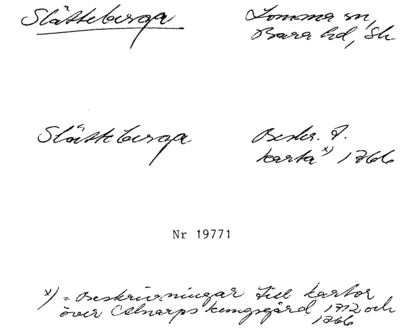 Slätteberga
Lomma sn,
Bara hd, Sk
Slätteberga
Beskr. t.
karta x) 1766
Nr 19771
x) = Beskrivningar till kartor
över Alnarps kungsgård 1712 och
1766